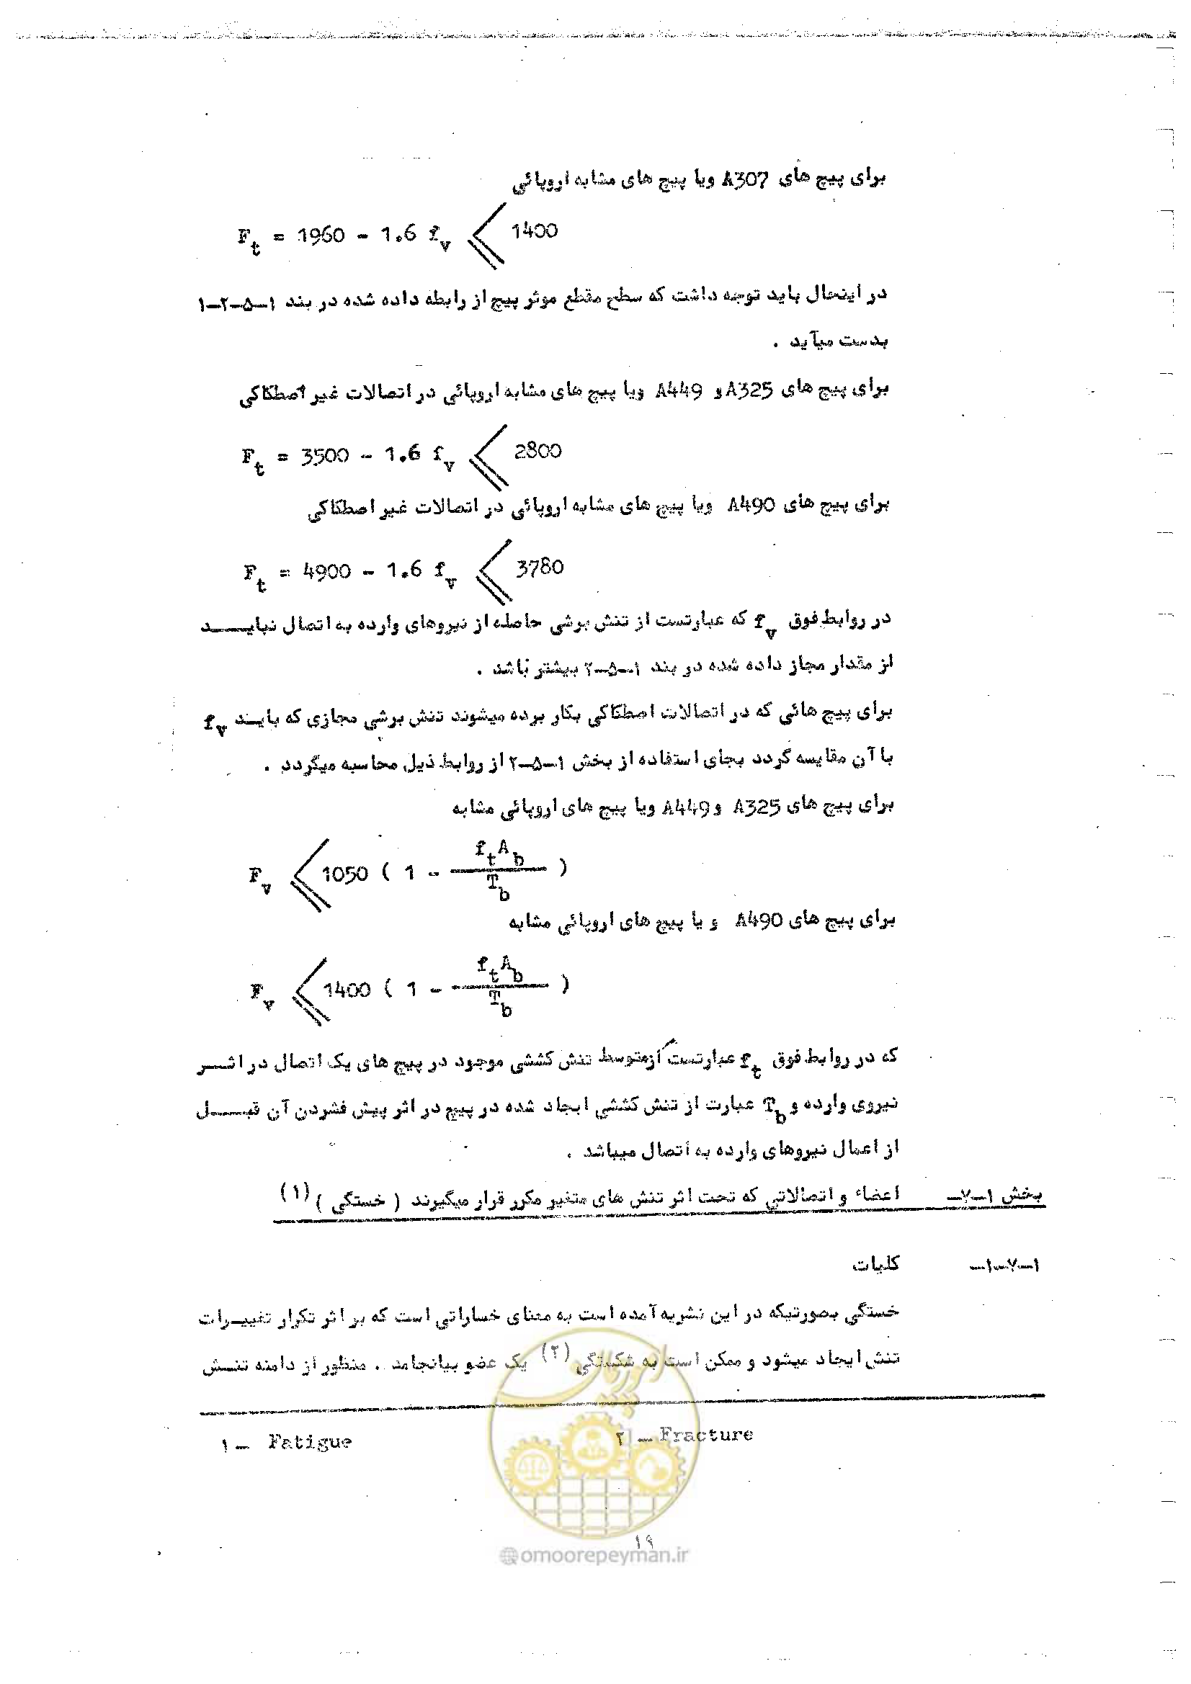 برای پیچ های A307 ویا پیچ های مشابه اروپائی
F_t = 1960 - 1.6 f_v ≤ 1400
در اینحال باید توجه داشت که سطح مقطع موثر پیچ از رابطه داده شده در بند ۱-۵-۲-۱
بدست میآید .
برای پیچ های A325 و A449 ویا پیچ های مشابه اروپائی در اتصالات غیر اصطکاکی
F_t = 3500 - 1.6 f_v ≤ 2800
برای پیچ های A490 ویا پیچ های مشابه اروپائی در اتصالات غیر اصطکاکی
F_t = 4900 - 1.6 f_v ≤ 3780
در روابط فوق f_v که عبارتست از تنش برشی حاصله از نیروهای وارده به اتصال نبایـــد
از مقدار مجاز داده شده در بند ۱-۵-۲ بیشتر باشد .
برای پیچ هائی که در اتصالات اصطکاکی بکار برده میشوند تنش برشی مجازی که بایـد f_v
با آن مقایسه گردد بجای استفاده از بخش ۱-۵-۲ از روابط ذیل محاسبه میگردد .
برای پیچ های A325 و A449 ویا پیچ های اروپائی مشابه
F_v ≤ 1050 ( 1 - f_t A_b / T_b )
برای پیچ های A490 و یا پیچ های اروپائی مشابه
F_v ≤ 1400 ( 1 - f_t A_b / T_b )
که در روابط فوق f_t عبارتست ازمتوسط تنش کششی موجود در پیچ های یک اتصال در اثـــر
نیروی وارده و T_b عبارت از تنش کششی ایجاد شده در پیچ در اثر پیش فشردن آن قبــــل
از اعمال نیروهای وارده به اتصال میباشد .
بخش ۱-۷- اعضاء و اتصالاتی که تحت اثر تنش های متغیر مکرر قرار میگیرند ( خستگی ) (۱)
۱-۷-۱- کلیات
خستگی بصورتیکه در این نشریه آمده است به معنای خساراتی است که بر اثر تکرار تغییـرات
تنش ایجاد میشود و ممکن است به شکستگی (۲) یک عضو بیانجامد . منظور از دامنه تنـش
۱ - Fatigue ۲ - Fracture
امور پیمان
۱۹
@omoorepeyman.ir